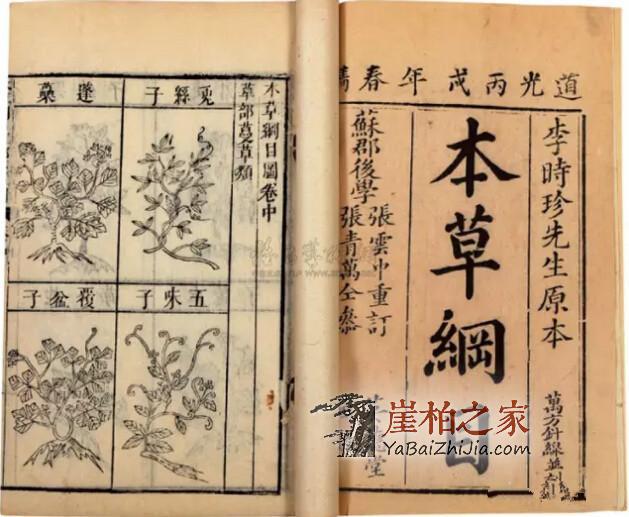 道光丙戌年春鐫
李時珍先生原本
萬方針線並刻
本草綱目
張雲中重訂
蘇郡後學
張青萬仝參
堂
本草綱目圖卷中
草部蔓草類
菟絲子
蓬蘽
五味子
覆盆子
崖柏之家
YaBaiZhiJia.com